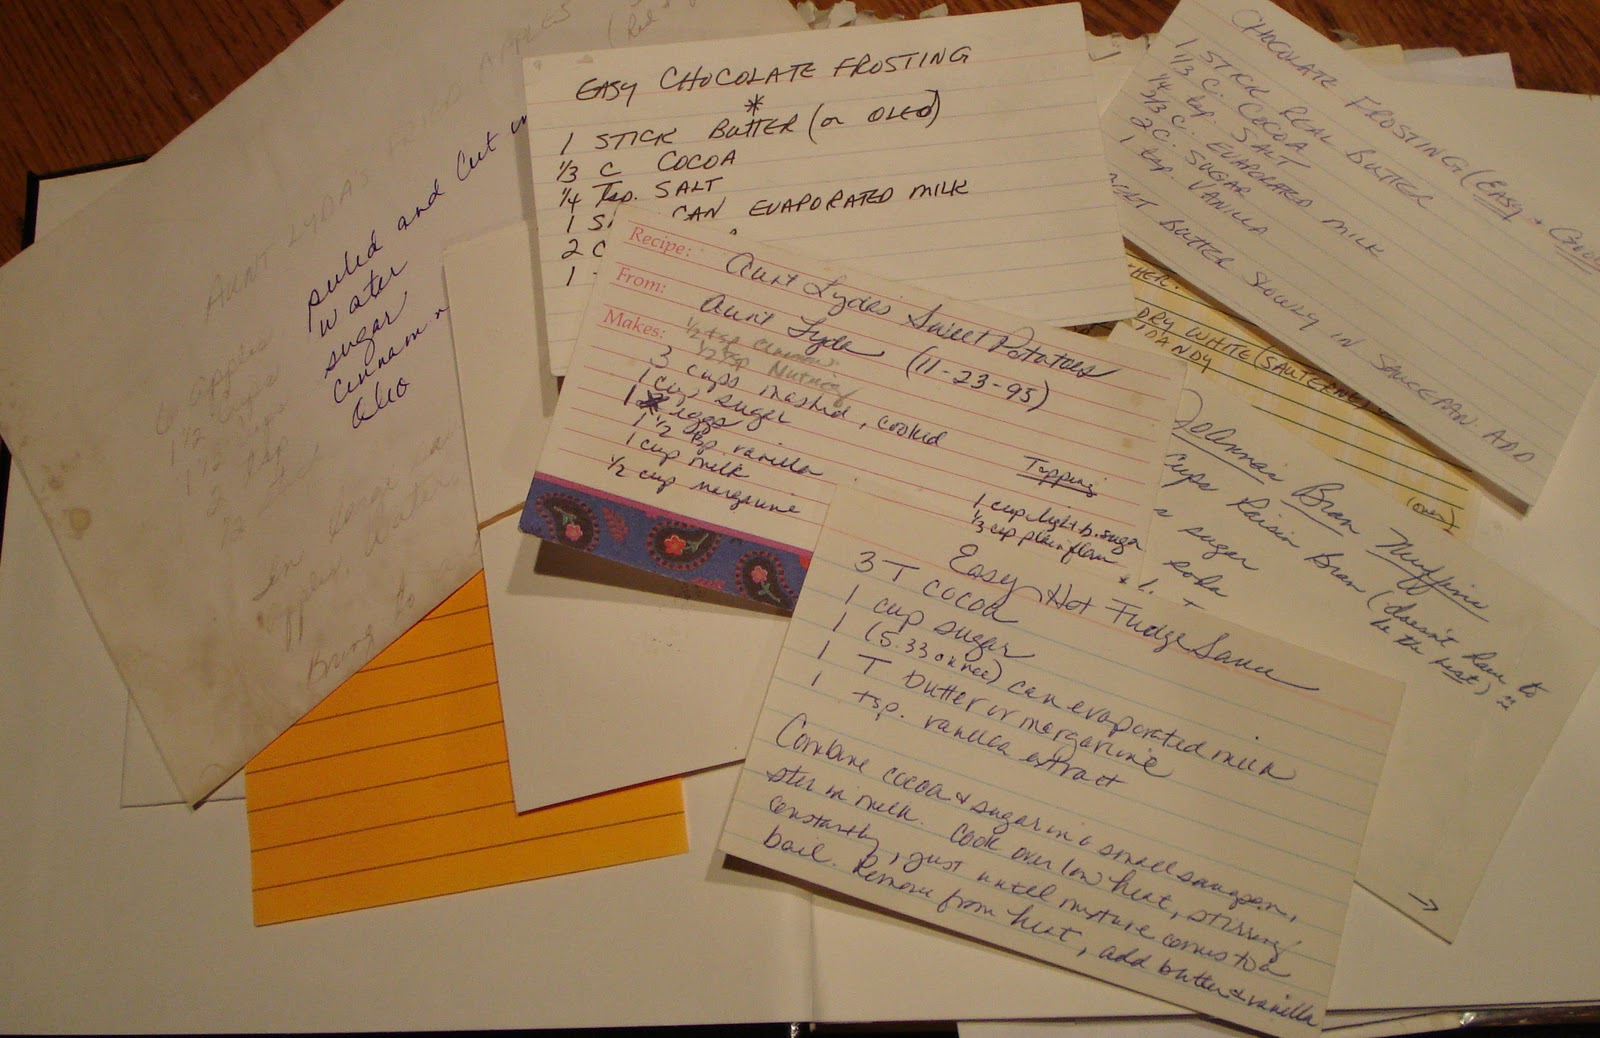 AUNT LYDA'S FRIED APPLES
6 apples
1 1/2 cups
1 1/2
2 tsp
1/2
Bring to
peeled and cut in
water
sugar
cinnamon
oleo
EASY CHOCOLATE FROSTING
*
1 STICK BUTTER (or OLEO)
1/3 C COCOA
1/4 Tsp. SALT
1 S CAN EVAPORATED MILK
2 C
1
CHOCOLATE FROSTING (EASY + GOOD
1 STICK REAL BUTTER
1/3 C. COCOA
1/4 tsp. SALT
2/3 C. EVAPORATED MILK
2 C. SUGAR
1 tsp. VANILLA
MELT BUTTER SLOWLY IN SAUCEPAN. ADD
THER.
DRY WHITE (SAUTERNE)
DANDY
(over)
Recipe: Aunt Lyda's Sweet Potatoes
From: Aunt Lyda (11-23-95)
Makes: 1/2 tsp cinnamon
1/2 tsp Nutmeg
3 cups mashed, cooked
1 cup sugar
1 eggs
1 1/2 tsp. vanilla
1 cup milk
1/2 cup margarine
Topping
1 cup light b. sugar
1/3 cup plain flour
Bran Muffins
Cups Raisin Bran (doesn't have to
be the best)
sugar
soda
→
Easy Hot Fudge Sauce
3 T cocoa
1 cup sugar
1 (5.33 ounce) can evaporated milk
1 T butter or margarine
1 tsp. vanilla extract
Combine cocoa & sugar in a small saucepan,
stir in milk. Cook over low heat, stirring
constantly, just until mixture comes to a
boil. Remove from heat, add butter & vanilla